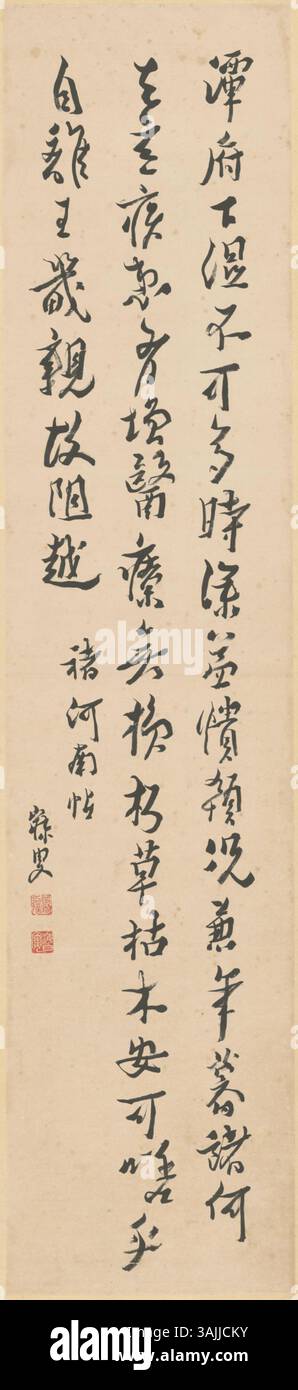 潭府下湿不可多時深益憒頓況兼年暮諸何
足言疾患有增醫療無損朽草枯木安可嗟乎
自離王畿親故阻越
褚河南帖
寐叟
alamy
alamy
Image ID: 3AJJCKY
www.alamy.com